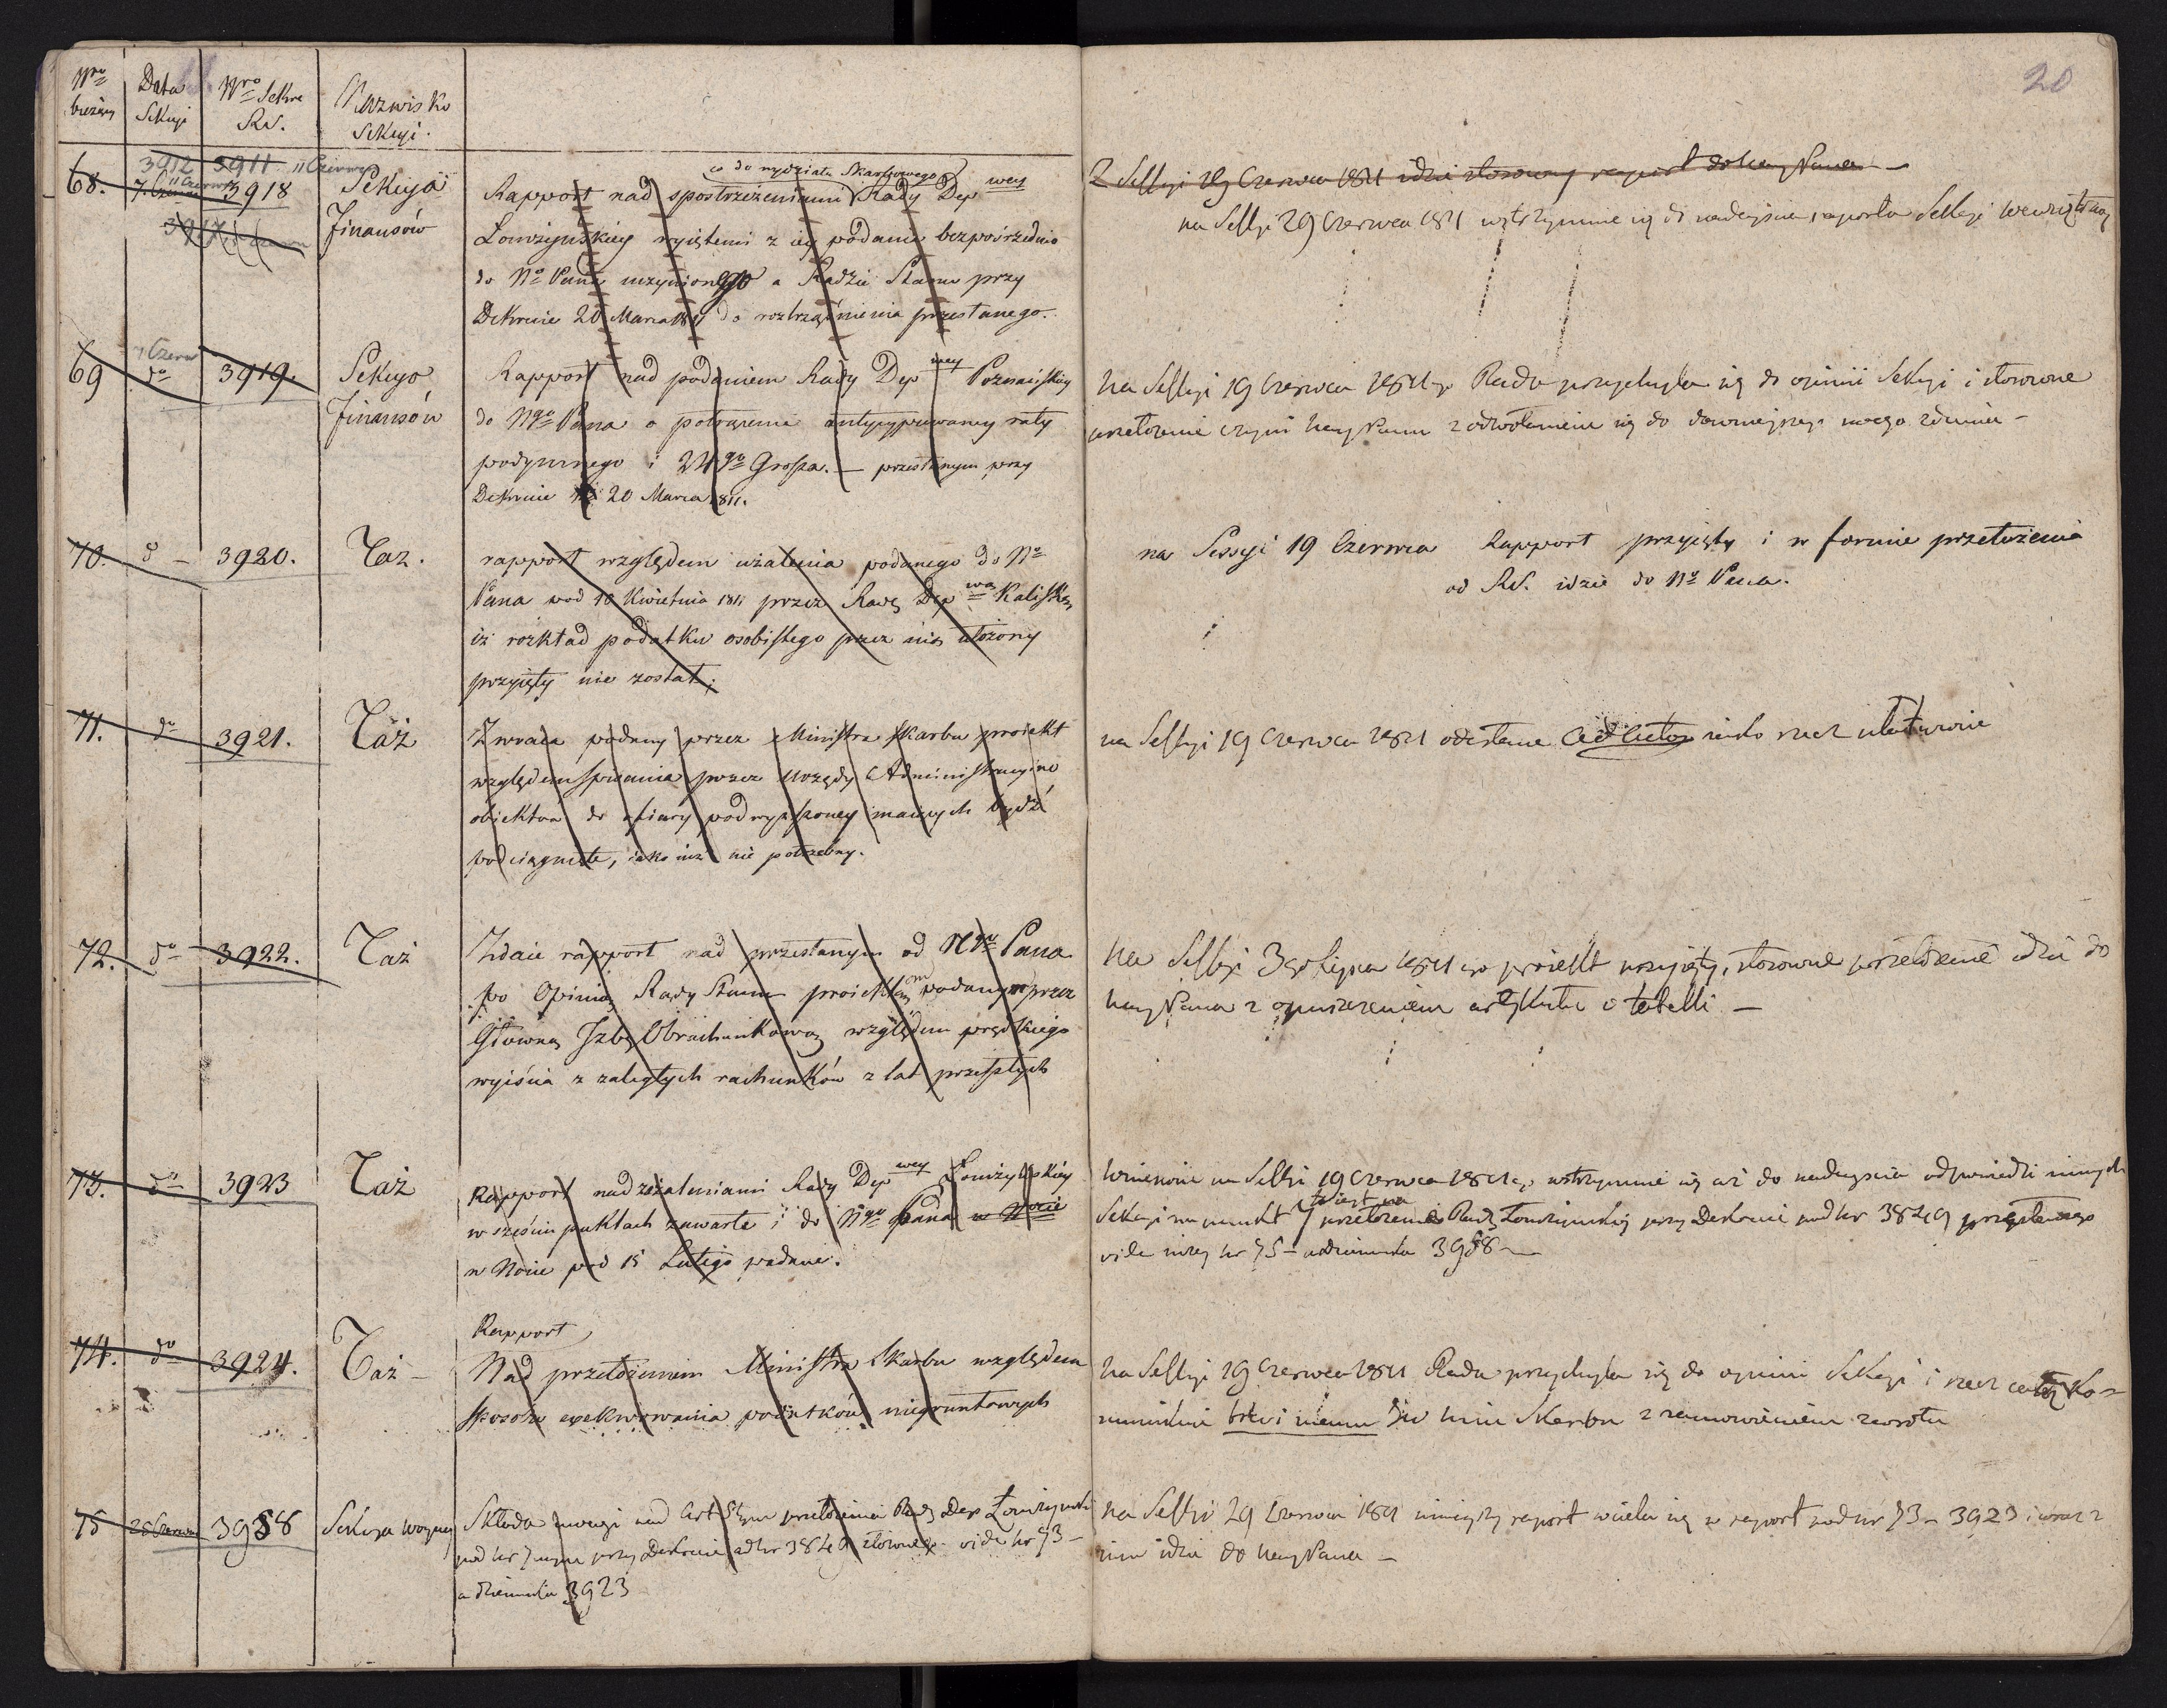 20
Nro bieżący
Data Sekcyi
Nro Sekre RS.
Nazwisko Sekcyi.
3912 3911 11 Czerwca
68. 7. Czerwca 11 Czerwca 3918 Sekcya Finansów
co do wydziału Skarbowego
Rapport nad spostrzeżeniami Rady Dep wey
Łomżyńskiey wyiętemi z iey podania bezpośrzednio
do No Pana uczynionego a Radzie Stanu przy
Dekrecie 20 Marca 1811 do roztrząśnienia przesłanego.
Z Sessyi 19 Czerwca 1811 idzie stosowny raport do Nay Pana —
na Sessyi 29 Czerwca 1811 wstrzymuie się do nadejścia raportu Sekcyi wewnętrzney
69 7 Czerw do 3919. Sekcya Finansów
Rapport nad podaniem Rady Dep wey Poznańskiey
do Ngo Pana o potrącenie antycypowaney raty
podymnego i 24go Grosza. — przesłanym przy
Dekrecie 20 Marca 1811.
na Sessyi 19 Czerwca 1811 r Rada przychyla się do opinii Sekcyi i stosowne
przełożenie czyni Nay Panu z odwołaniem się do dawnieyszego swego zdania —
70. do — 3920. Taż.
rapport względem użalenia podanego do No
Pana pod 10 Kwietnia 1811 przez Radę Dep wą Kaliską
iż rozkład podatku osobistego przez nią ułożony
przyięty nie został;
na Sessyi 19 Czerwca Rapport przyięty i w formie przełożenia
od RS. idzie do No Pana.
71. do 3921. Taż
Zwraca podany przez Ministra Skarbu proiekt
względem spisania przez Urzędy Administracyine
obiektów do ofiary podwyższoney maiących bydź
pociągnięte, iako iuż nie potrzebny.
na Sessyi 19 Czerwca 1811 odesłane Ad Acta iako rzecz ułatwiona
72. do — 3922. Taż
Zdaie rapport nad przesłanym od Ngo Pana
po Opinią Rady Stanu proiektem podanym przez
Główną Izbę Obrachunkową względem prędkiego
wyiścia z zaległych rachunków z lat przeszłych
na Sessyi 3go Lipca 1811 go proiekt przyięty, stosowne przełożenie idzie do
Nay Pana z opuszczeniem artykułu o tabelli —
73. do 3923 Taż
Rapport nad zażaleniami Rady Dep wey Łomżyńskiey
w sześciu punktach zawarte i do Ngo Pana w Nocie
w Nocie pod 15 Lutego podane.
Wniesione na Sessyi 19 Czerwca 1811 r, wstrzymuie się aż do nadeyścia odpowiedzi innych
Sekcyi na punkt przełożenia Rady Łomżyńskiey przy Dekrecie pod Nr 3849 przesłanego
vide niżey Nr 75 — a dziennika 3958 —
74. do 3924. Taż —
Rapport
Nad przełożeniem Ministra Skarbu względem
sposobu exekwowania podatków niegruntowych
na Sessyi 19 Czerwca 1811 Rada przychyla się do opinii Sekcyi i rzecz całą ko=
munikuie brevi manu JW Min Skarbu z zamówieniem zwrotu
75 26 Czerwca 3958 Sekcya Woyny
Składa uwagi nad Art 5tym przełożenia Rady Dep Łomżyńsk
pod Nr 7mym przy Dekrecie ad Nr 3849 złożonego vide Nr 73 —
a dziennika 3923
na Sessyi 29 Czerwca 1811 ninieyszy raport wciela się w raport pod Nr 73 — 3923 i wraz z
nim idzie do Nay Pana —